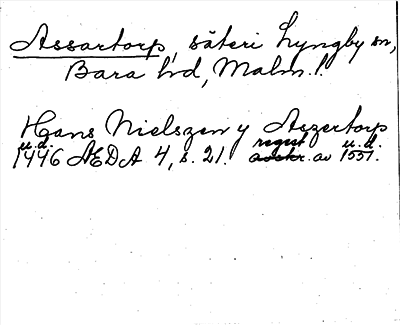 Assartorp, säteri Lyngby sn,
Bara hd, Malm. l.
Hans Nielszen y Aszertorp
u.d. regest u.d.
1446 ÆDA 4, s. 21. avskr. av 1551.